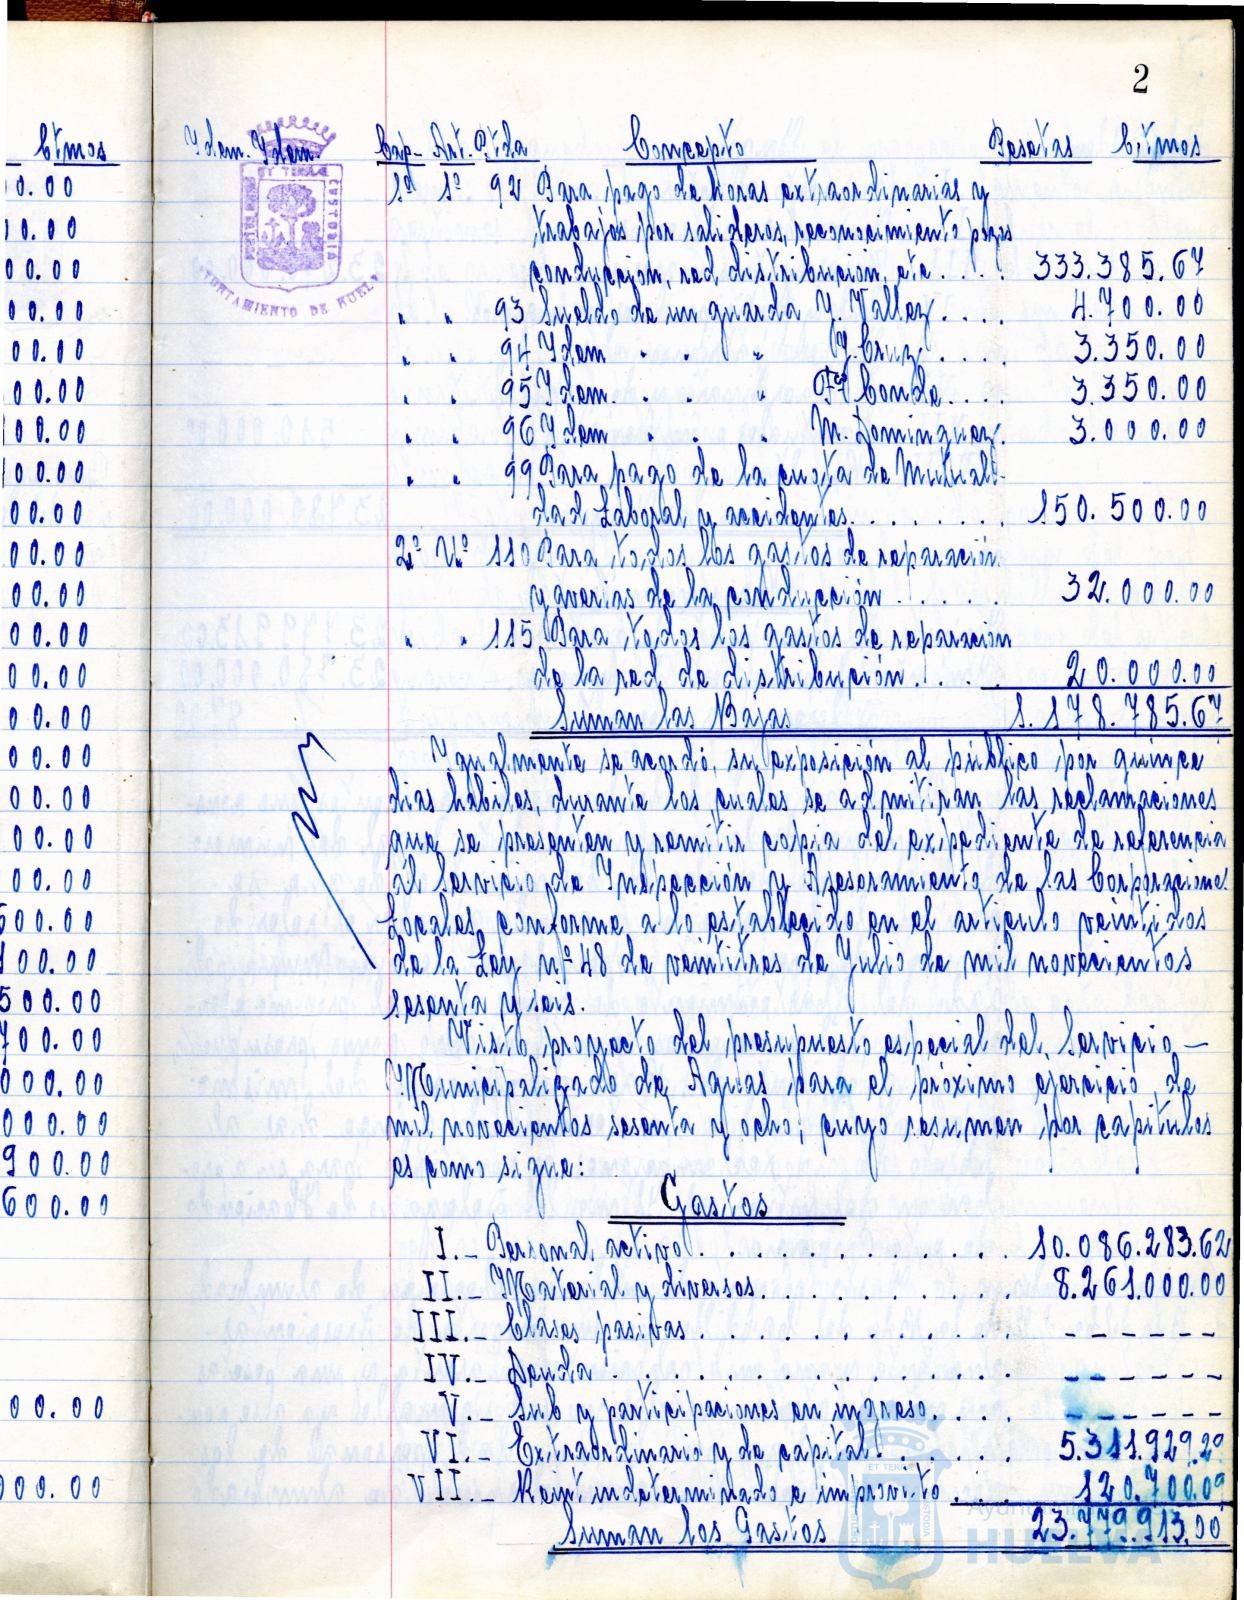 2
Ctmos
Idem. Idem.
Cap- Art. Ptda Concepto Pesetas Ctmos
1º 1º 92 Para pago de horas extraordinarias y
trabajos por salideros, reconocimiento pozos
conducción, red distribución, etc.... 333.385.67
" " 93 Sueldo de un guarda Y. Vallez.... 4.700.00
" " 94 Idem " " " J. Cruz.... 3.350.00
" " 95 Idem. " " " Fº Conde... 3.350.00
" " 96 Idem " " " M. Dominguez. 3.000.00
" " 99 Para pago de la cuota de Mutuali-
dad Laboral y accidentes........ 150.500.00
2º Uº 110 Para todos los gastos de reparación
y averias de la conducción...... 32.000.00
" " 115 Para todos los gastos de reparación
de la red de distribución..... 20.000.00
Suman las Bajas 1.178.785.67
Igualmente se acordó, su exposición al público por quince
dias hábiles, durante los cuales se admitiran las reclamaciones
que se presenten y remitir copia del expediente de referencia
al Servicio de Inspección y Asesoramiento de las Corporaciones
Locales, conforme a lo establecido en el articulo veintidos
de la Ley nº 48 de veintitres de Julio de mil novecientos
sesenta y seis.
Visto proyecto del presupuesto especial del Servicio -
Municipalizado de Aguas para el próximo ejercicio de
mil novecientos sesenta y ocho, cuyo resumen por capitulos
es como sigue:
Gastos
I.- Personal activo............ 10.086.283.62
II.- Material y diversos.......... 8.261.000.00
III.- Clases pasivas............ ------
IV.- Deuda............... ------
V.- Sub y participaciones en ingreso.... ------
VI.- Extraordinario y de capital...... 5.311.929.29
VII.- Reint indeterminado e imprevisto.... 120.700.09
Suman los Gastos 23.779.913.00
AYUNTAMIENTO DE HUELVA
HUELVA